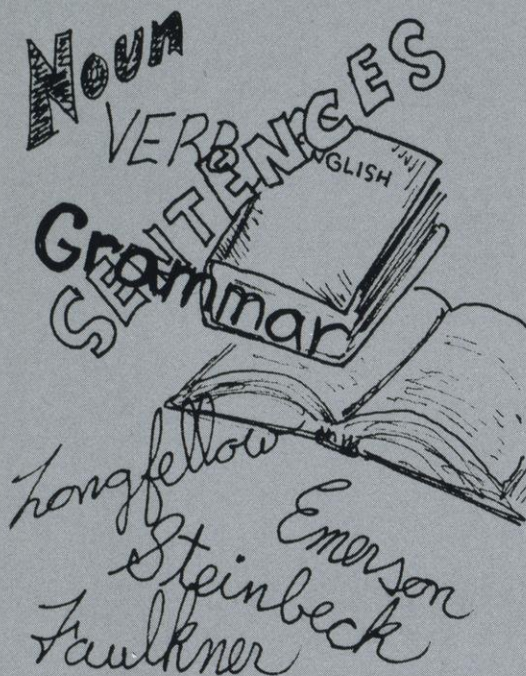 Noun
VERB
SENTENCES
ENGLISH
Grammar
Longfellow
Emerson
Steinbeck
Faulkner